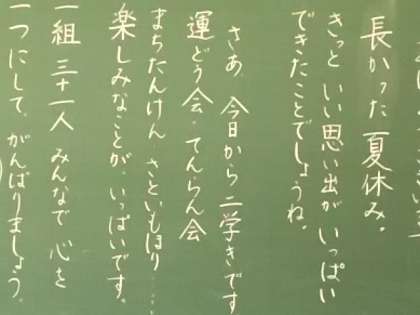 長かった夏休み。
きっと いい思い出が いっぱい
できたことでしょうね。
さあ、今日から 二学きです
運どう会・てんらん会
まちたんけん さといもほり……
楽しみなことが、いっぱいです。
一組 三十一人 みんなで 心を
一つにして、がんばりましょう。